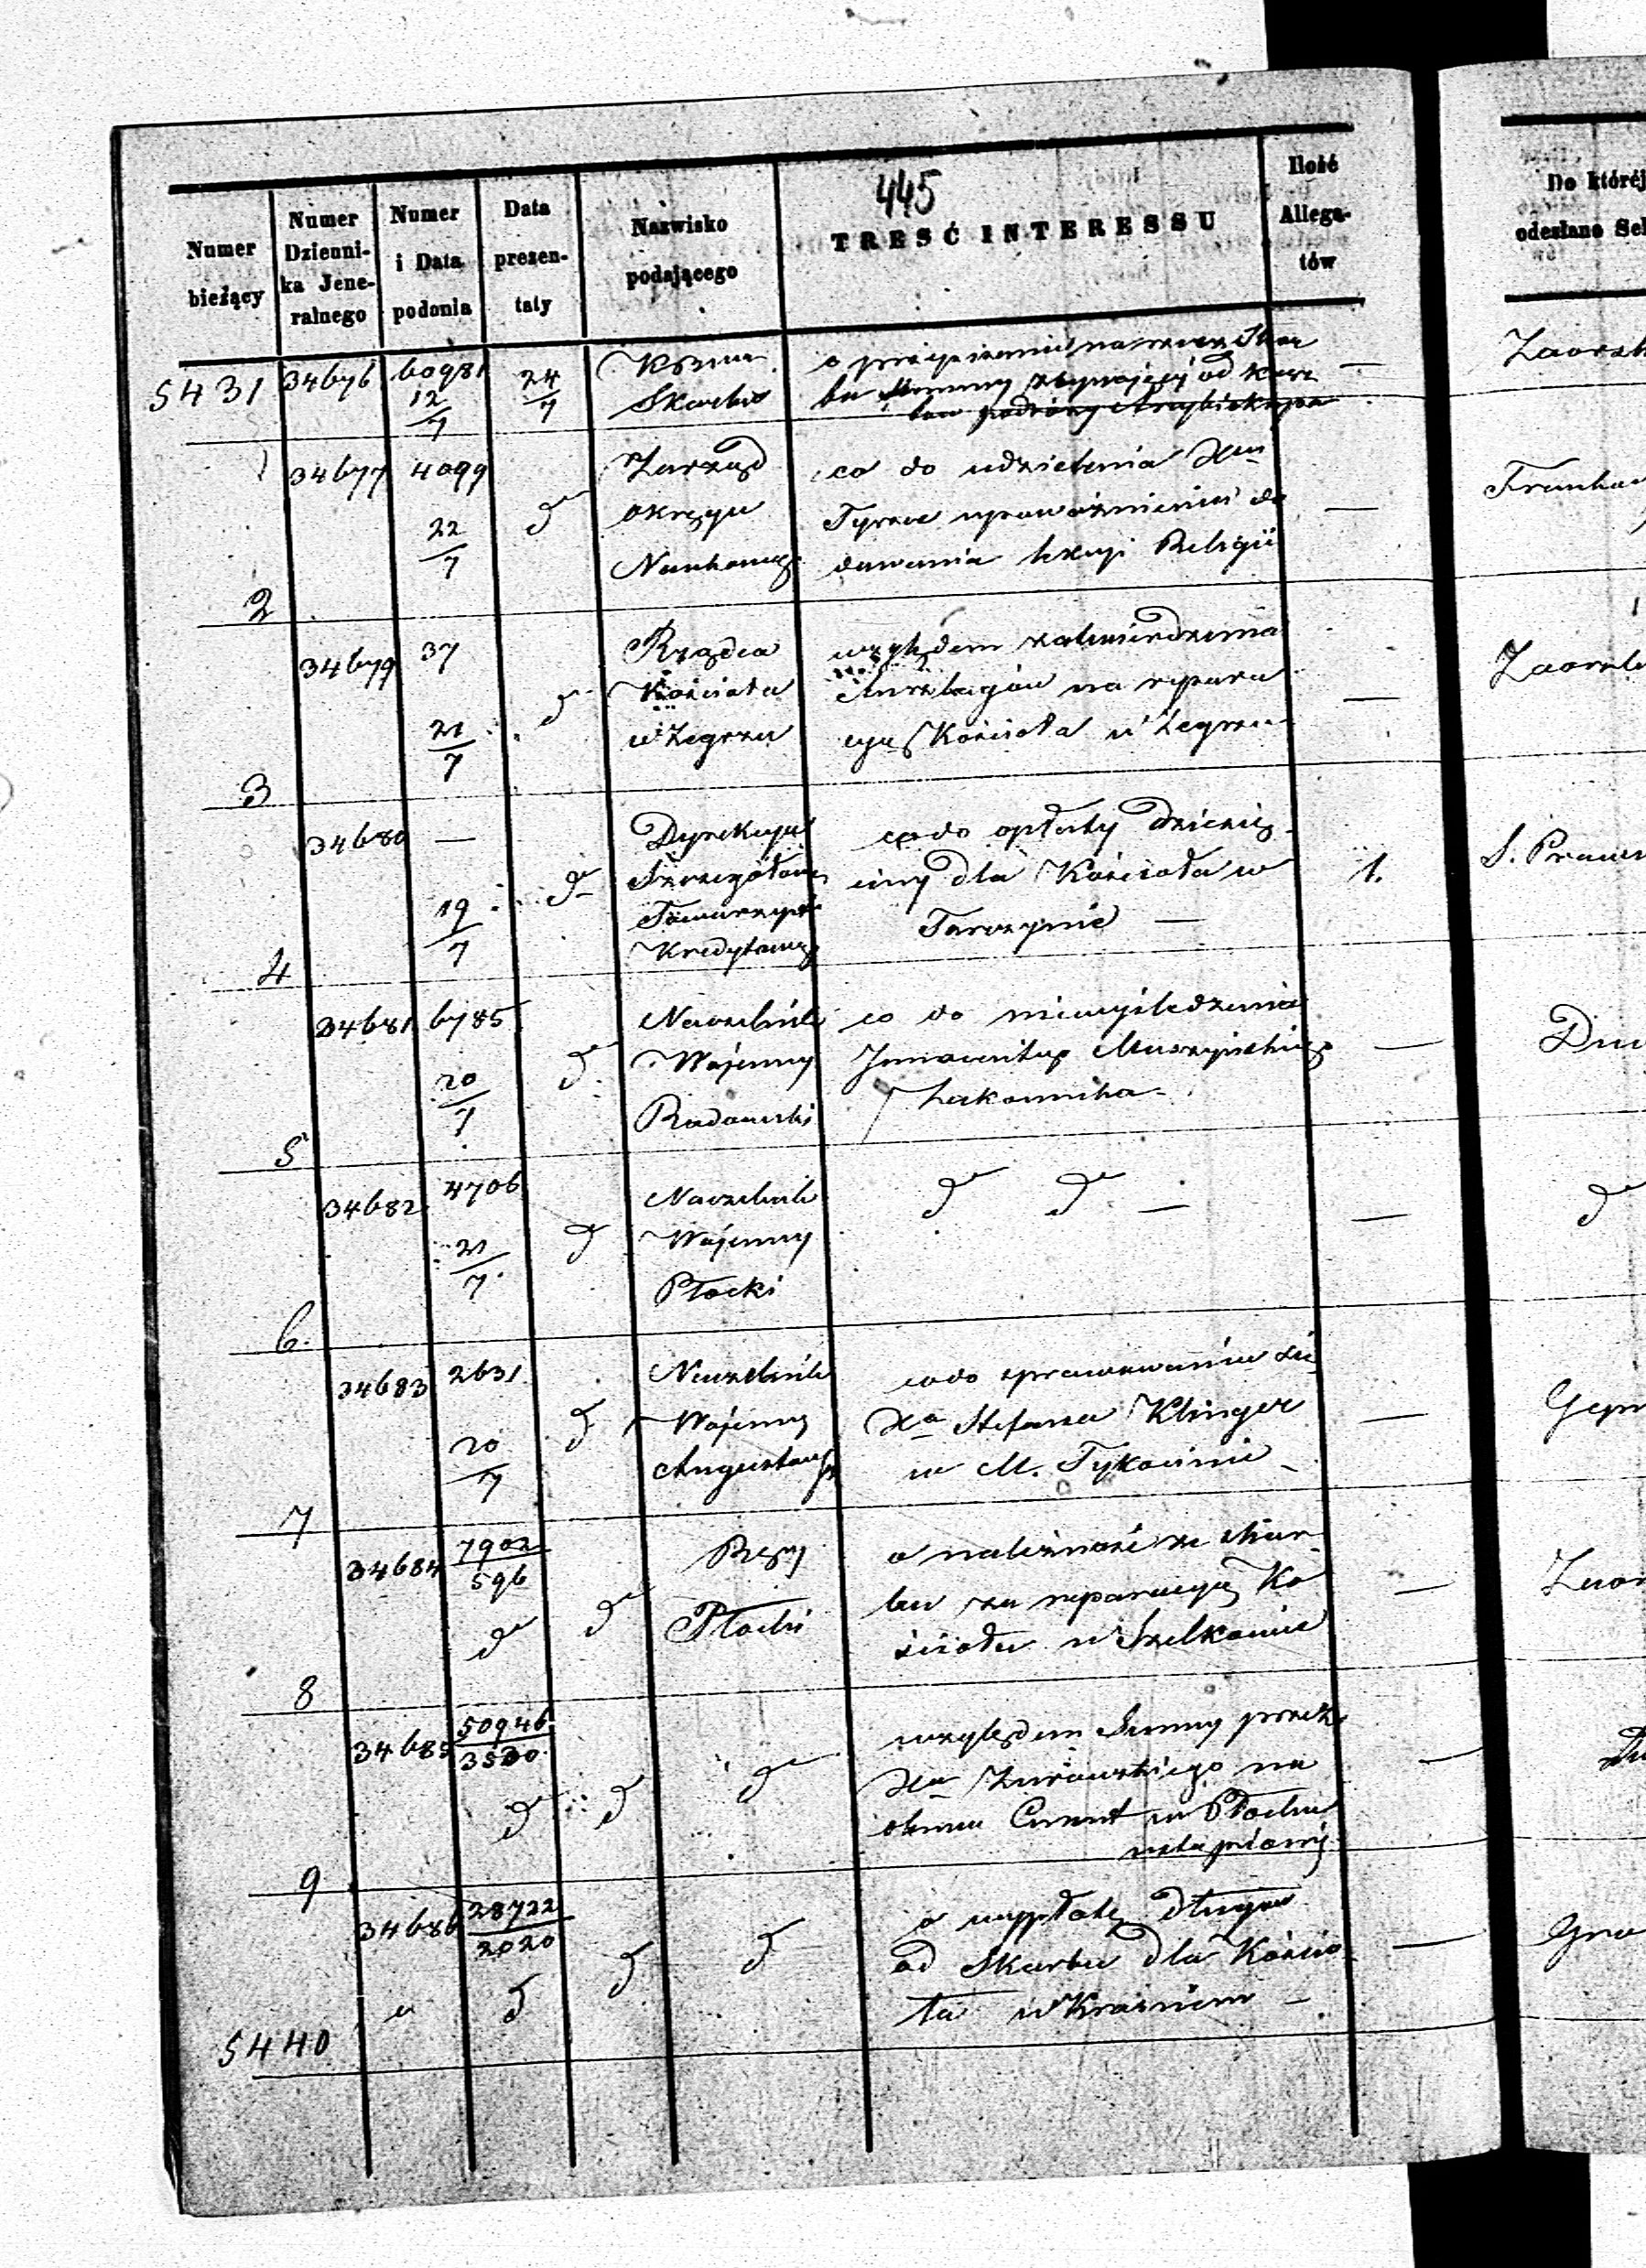 445
Numer bieżący
Numer Dzienni- ka Jene- ralnego
Numer i Data podania
Data prezen- taty
Nazwisko podającego
TREŚĆ INTERESSU
Ilość Allega- tów
Do któréj
odesłano
5431 34676 60981 12/7 24/7
Skarbu
o przypisanie na rzecz Skar
bu Summy od kosz
tów podróży Arcybiskupa
—
34677 4099 22/7 d
Zarząd
Okręgu
Naukowego
co do udzielenia Xu
upoważnienia do
dawania lekcyi Religii
—
2
34679 37 21/7 d
Rządca
Kościoła
w Zegrzu
względem zatwierdzenia
Anszlagów na repara
cyą Kościoła w Zegrzu
—
3
34680 — 19/7 d
Dyrekcya
Szczegółowa
Towarzystwa
Kredytowego
co do opłaty dziesię
ciny dla Kościoła w
Tarczynie —
1.
4
34681 6785 20/7 d
Naczelnik
Wojenny
Radomski
co do niewyśledzenia
Muszyńskiego
Zakonnika
—
5
34682 4706 21/7 d
Naczelnik
Wojenny
Płocki
d d —
—
d
6
34683 2631 20/7 d
Naczelnik
Wojenny
Augustowski
co do sprawowania się
Xa Stefana Klinger
w M. Tykocinie
—
7
34684 7902/596 d d
Płocki
o należność ze Skar
bu za reparacyą Ko
ścioła w Szelkowie
—
8
34685 50946/3530 d d d
względem Summy przez
Xa Żurawskiego na
w Płocku
—
9
34686 28722/2020 d d d
o wypłatę długu
od Skarbu dla Kościo
ła w
—
5440